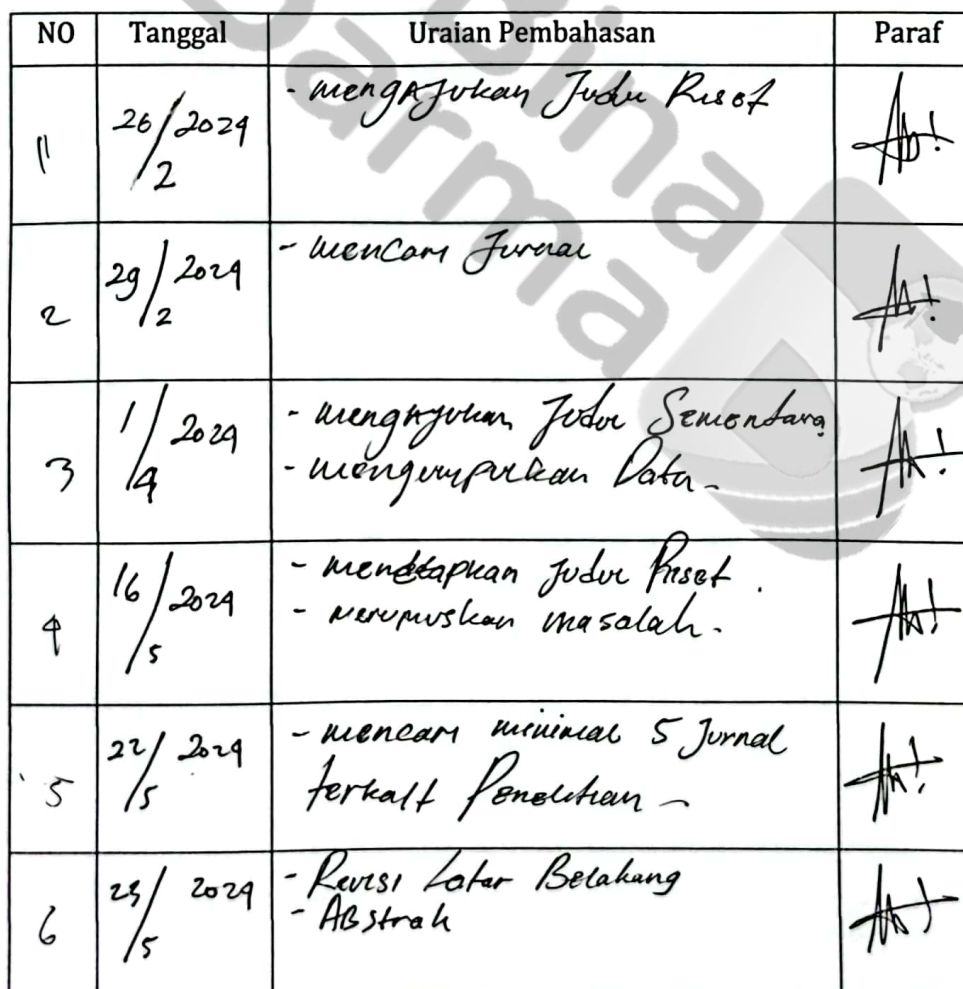 Bina
Darma
NO Tanggal Uraian Pembahasan Paraf
1 26/2 2024 - mengajukan Judul Riset
2 29/2 2024 - mencari Jurnal
3 1/4 2024 - mengajukan Judul Sementara
- mengumpulkan Data -
4 16/5 2024 - menetapkan judul Riset.
- merumuskan masalah.
5 22/5 2024 - mencari minimal 5 Jurnal
terkait Penelitian -
6 /5 2024 - Revisi Latar Belakang
- ABstrak